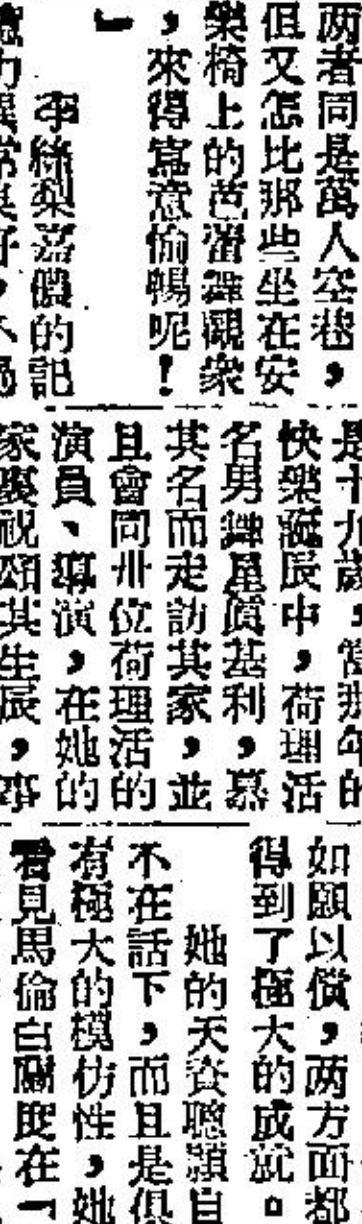 两者同是萬人空巷，
但又怎比那些坐在安
樂椅上的芭蕾舞觀衆
，來得寫意愉暢呢！
」
李絲梨嘉儂的記
憶力異常良好，不過
是十九歲，當那年的
快樂誕辰中，荷理活
名男舞星賓基利，慕
其名而走訪其家，並
且會同卅位荷理活的
演員、導演，在她的
家裏祝頌其生辰，事
如願以償，两方面都
得到了極大的成就。
她的天資聰頴自
不在話下，而且是俱
有極大的模仿性，她
看見馬倫白蘭度在「